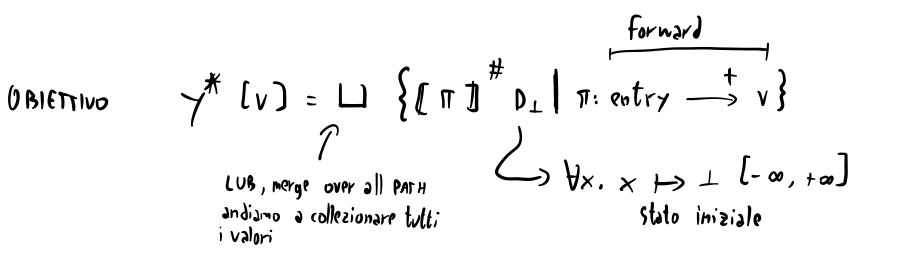 forward
OBIETTIVO Y* [v] = ⊔ {⟦π⟧# D⊥ | π: entry →+ v}
LUB, merge over all PATH
andiamo a collezionare tutti
i valori
∀x. x ↦ ⊥ [-∞, +∞]
stato iniziale